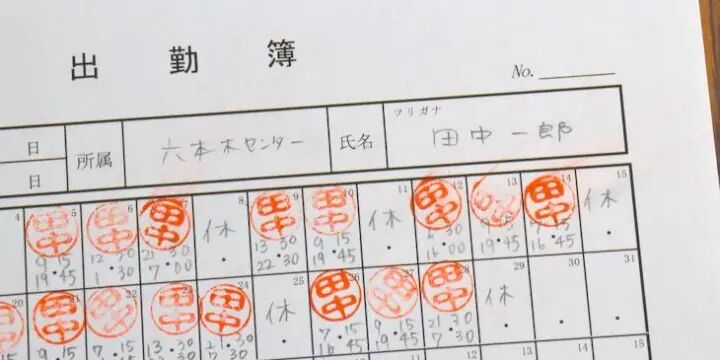 出勤簿
No.
日 所属 六本木センター 氏名 フリガナ 田中一郎
日
4 5 6 7 8 9 10 11 12 13 14 15
田中 田中 田中 休 田中 田中 休 田中 田中 休
9.15 12.30 21.30 . 13.30 9.15 . 9.15 .
19.45 1.30 7.00 22.30 19.45 16.00 19.45 16.45
20 21 22 23 24 25 26 27 28 29 30 31
田中 田中 田中 休 田中 田中 田中 休
9.15 7.15 13.30 21.30 . 7.15 9.15 21.30 . . .
16.45 19.45 7.00